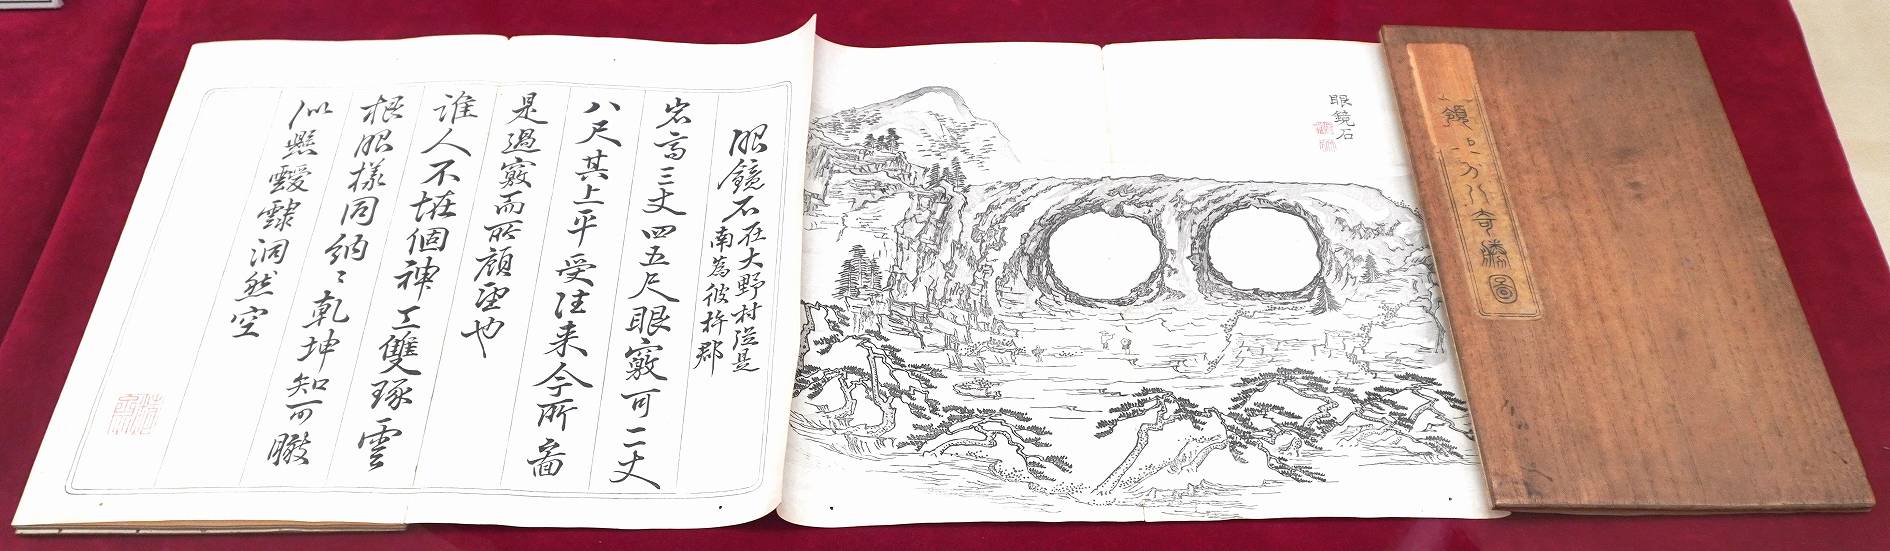 領地方八奇勝圖
眼鏡石
眼鏡石在大野村従是
南為彼杵郡
岩高三丈四五尺眼竅可二丈
八尺其上平受往来今所啚
是過竅而所顧望也
誰人不怪個神工雙琢雲
根眼様同納〻乾坤知可瞰
似懸靉靆洞然空